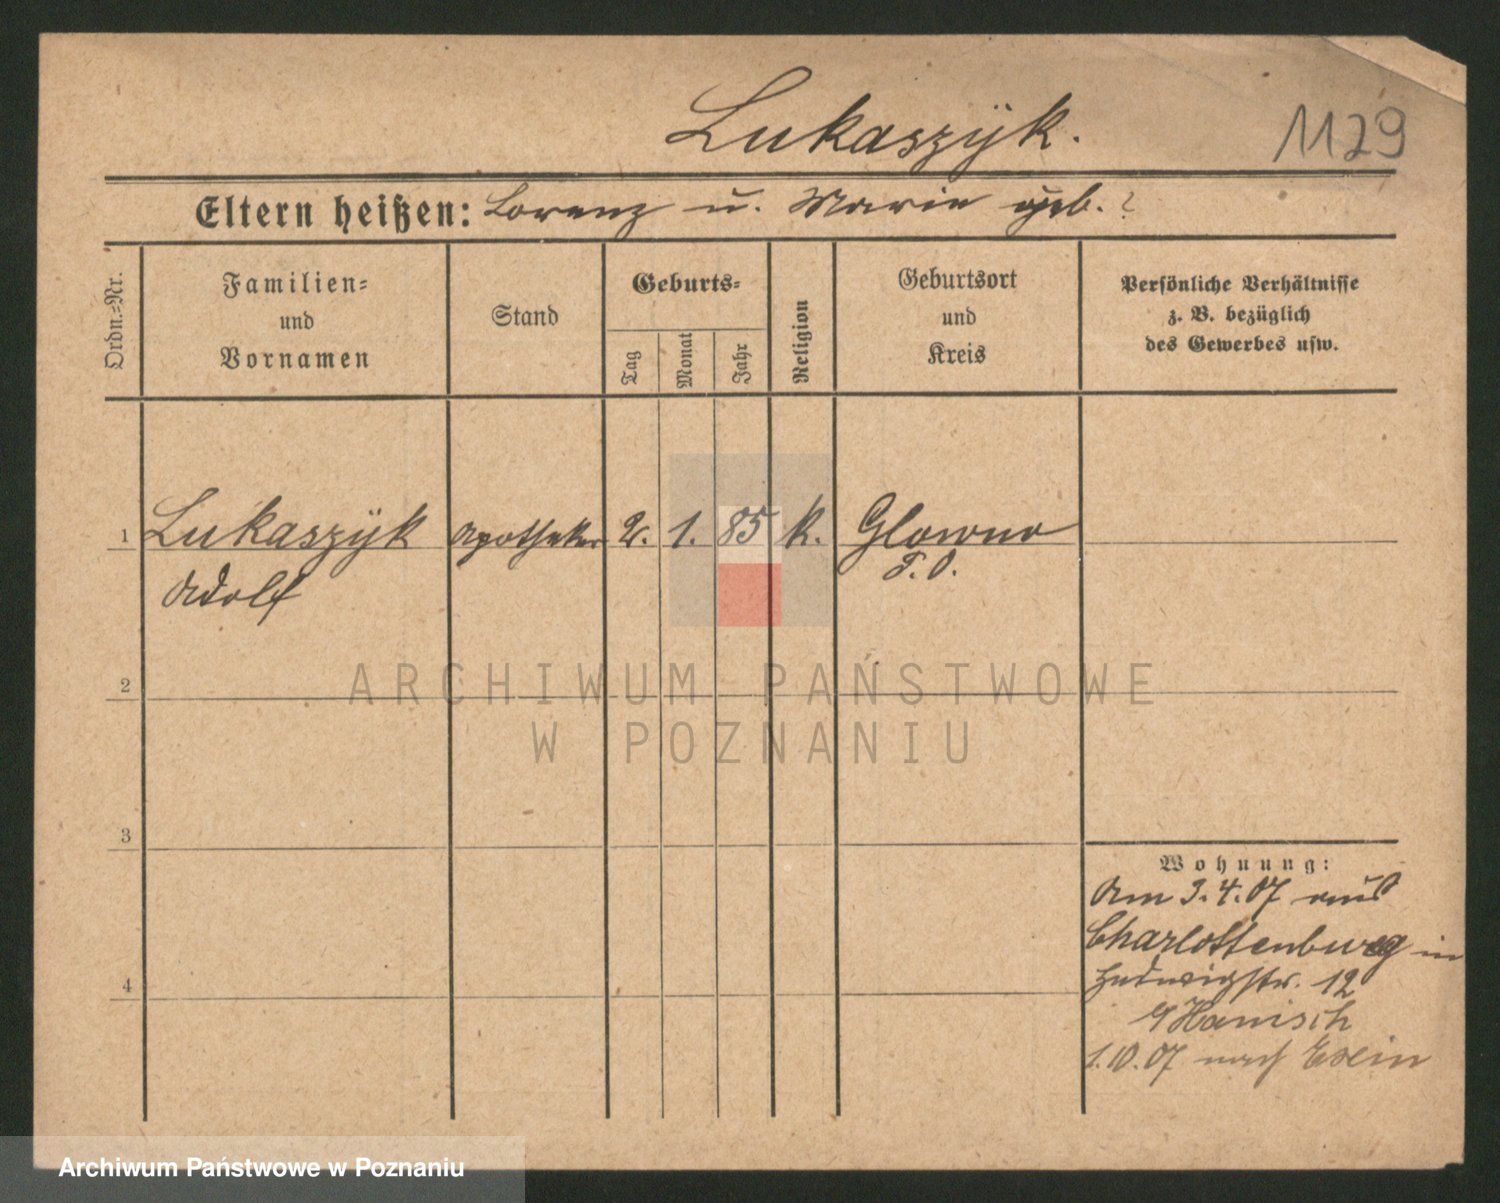 Lukaszÿk.
1129
Eltern heißen: Lorenz u. Marie geb. ?
Ordn.=Nr.
Familien=
und
Vornamen
Stand
Geburts=
Tag
Monat
Jahr
Religion
Geburtsort
und
Kreis
Persönliche Verhältnisse
z. B. bezüglich
des Gewerbes usw.
1
Lukaszÿk
Adolf
Apotheker
2.
1.
85
k.
Glowno
P. O.
2
3
4
ARCHIWUM PAŃSTWOWE
W POZNANIU
Wohnung:
Am 3.4.07 aus
Charlottenburg in
Ludwigstr. 12
b/Hanisch
1.10.07 nach Exin
Archiwum Państwowe w Poznaniu